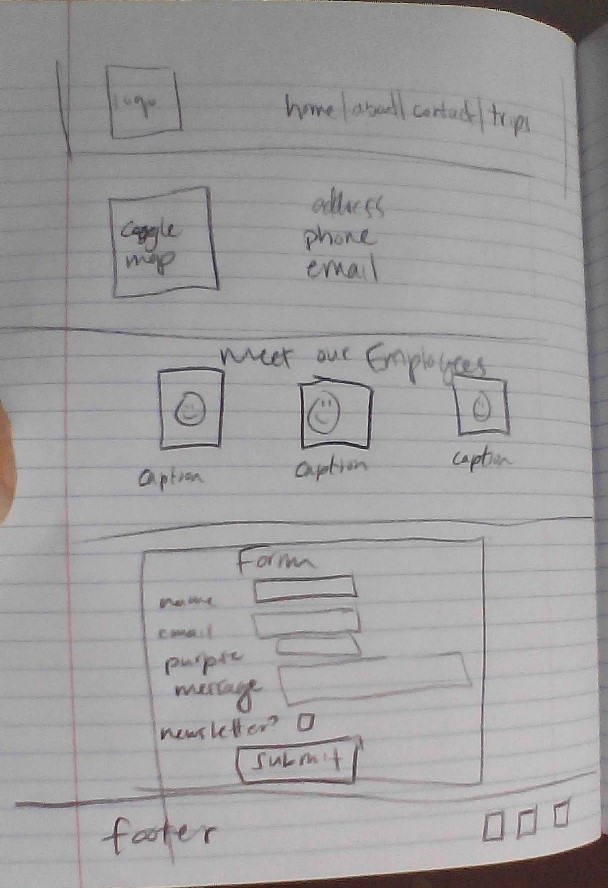 logo
home/about/contact/trips
google
map
address
phone
email
Meet our Employees
caption
caption
caption
Form
name
email
purpose
message
newsletter?
submit
footer